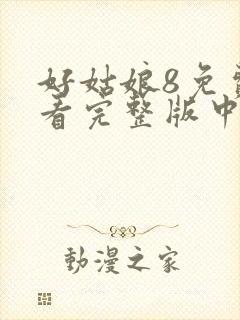 好姑娘8免费
看完整版中
動漫之家